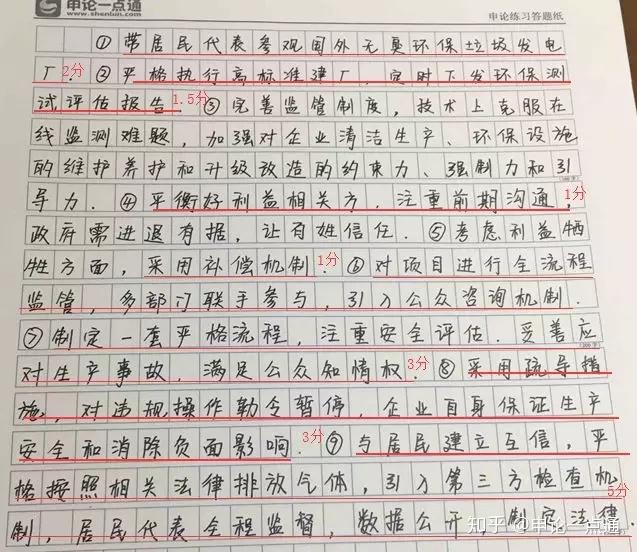 申论一点通
www.shenlun.com
申论练习答题纸
①带居民代表参观国外无臭环保垃圾发电
厂. 2分 ②严格执行高标准建厂, 定时下发环保测
试评估报告. 1.5分 ③完善监管制度, 技术上克服在
线监测难题, 加强对企业清洁生产、环保设施
的维护养护和升级改造的约束力、强制力和引
导力. ④平衡好利益相关方, 注重前期沟通, 1分
政府需进退有据, 让百姓信任. ⑤考虑利益牺
牲方面, 采用补偿机制. 1分 ⑥对项目进行全流程
监管, 多部门联手参与, 引入公众咨询机制.
⑦制定一套严格流程, 注重安全评估. 妥善应
对生产事故, 满足公众知情权. 3分 ⑧采用疏导措
施, 对违规操作勒令暂停, 企业自身保证生产
安全和消除负面影响. 3分 ⑨与居民建立互信, 严
格按照相关法律排放气体, 引入第三方检查机 5分
制, 居民代表全程监督, 数据公开, 制定法律.
知乎 @申论一点通